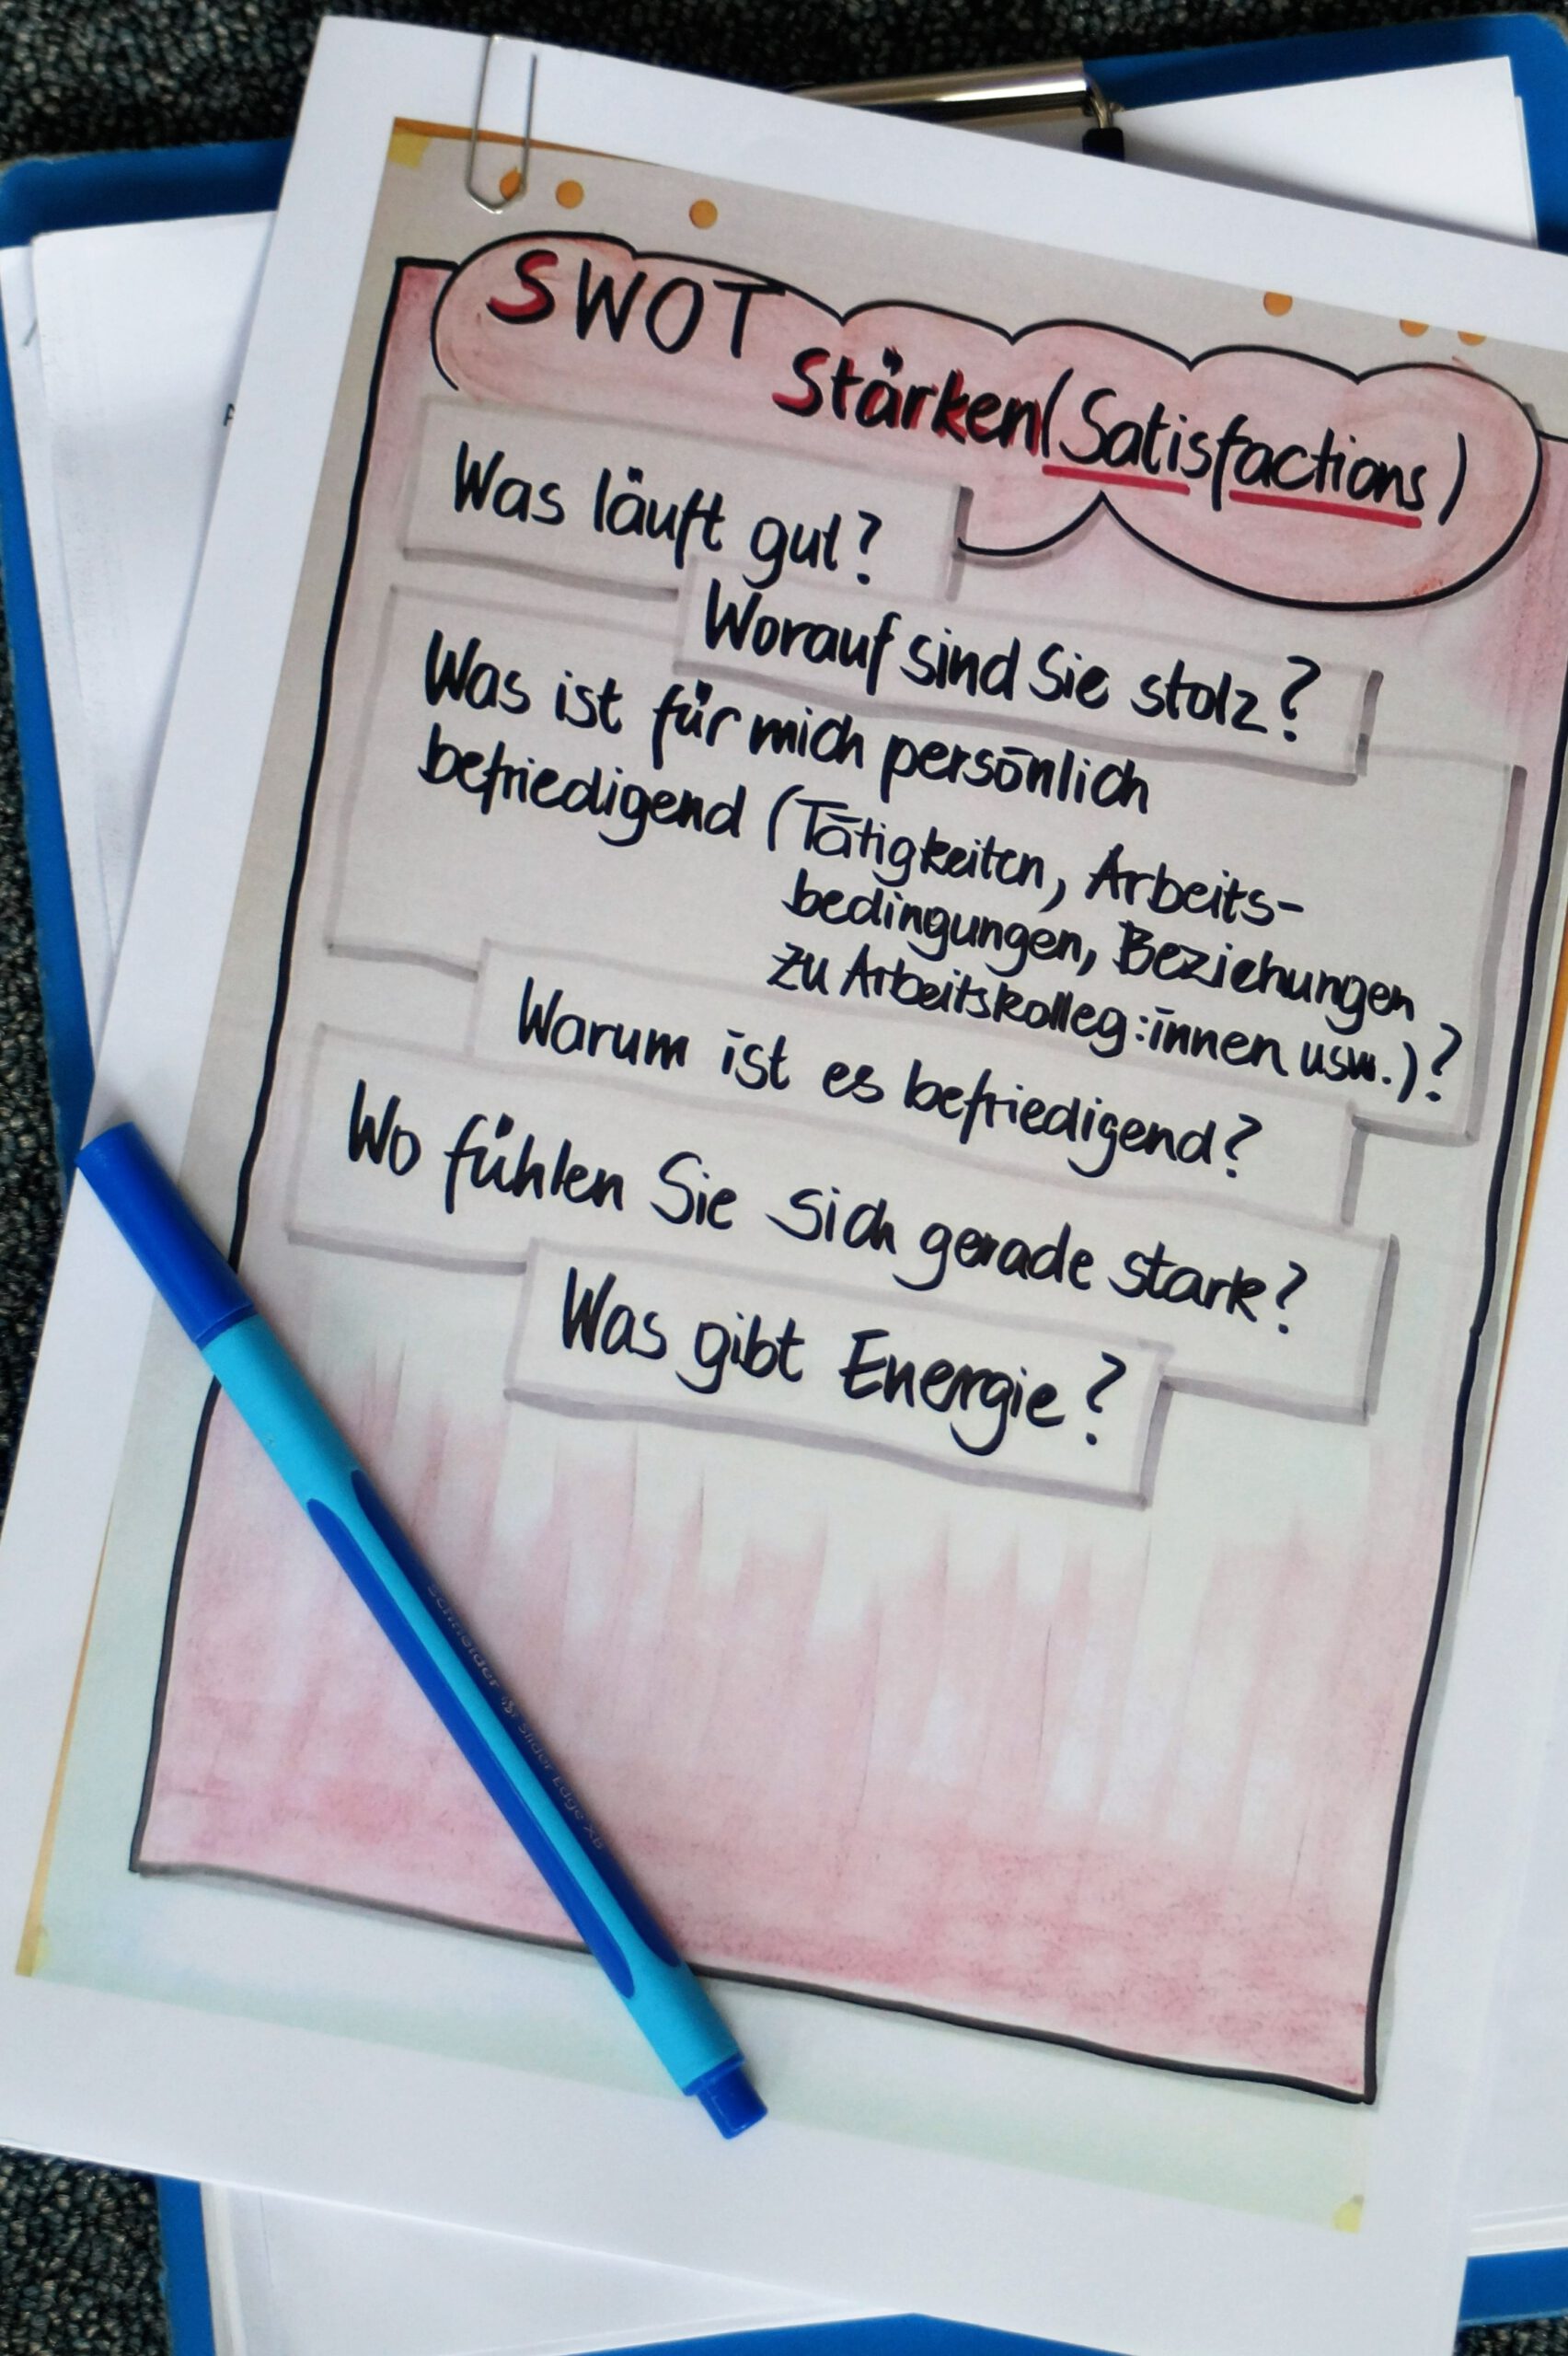 SWOT
Stärken (Satisfactions)
Was läuft gut?
Worauf sind Sie stolz?
Was ist für mich persönlich
befriedigend (Tätigkeiten, Arbeits-
bedingungen, Beziehungen
zu Arbeitskolleg:innen usw.)?
Warum ist es befriedigend?
Wo fühlen Sie sich gerade stark?
Was gibt Energie?
Schneider Slider Edge XB